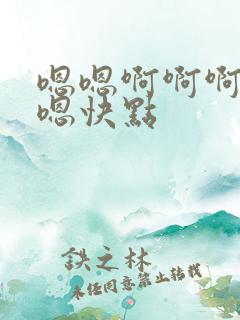 嗯嗯啊啊啊
嗯快點
鉄之林
未经同意禁止转载